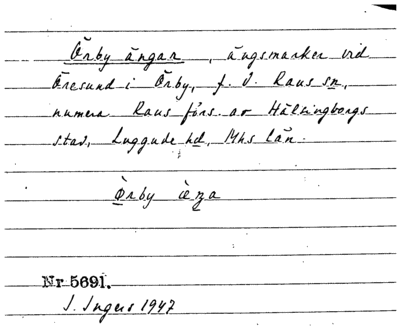 Örby ängar, ängsmarker vid
Öresund i Örby, f. d. Raus sn,
numera Raus förs. av Hälsingborgs
stad, Luggude hd, Mhs län.
Ö̀rby æ̀ŋa
Nr 5691.
I. Ingers 1947